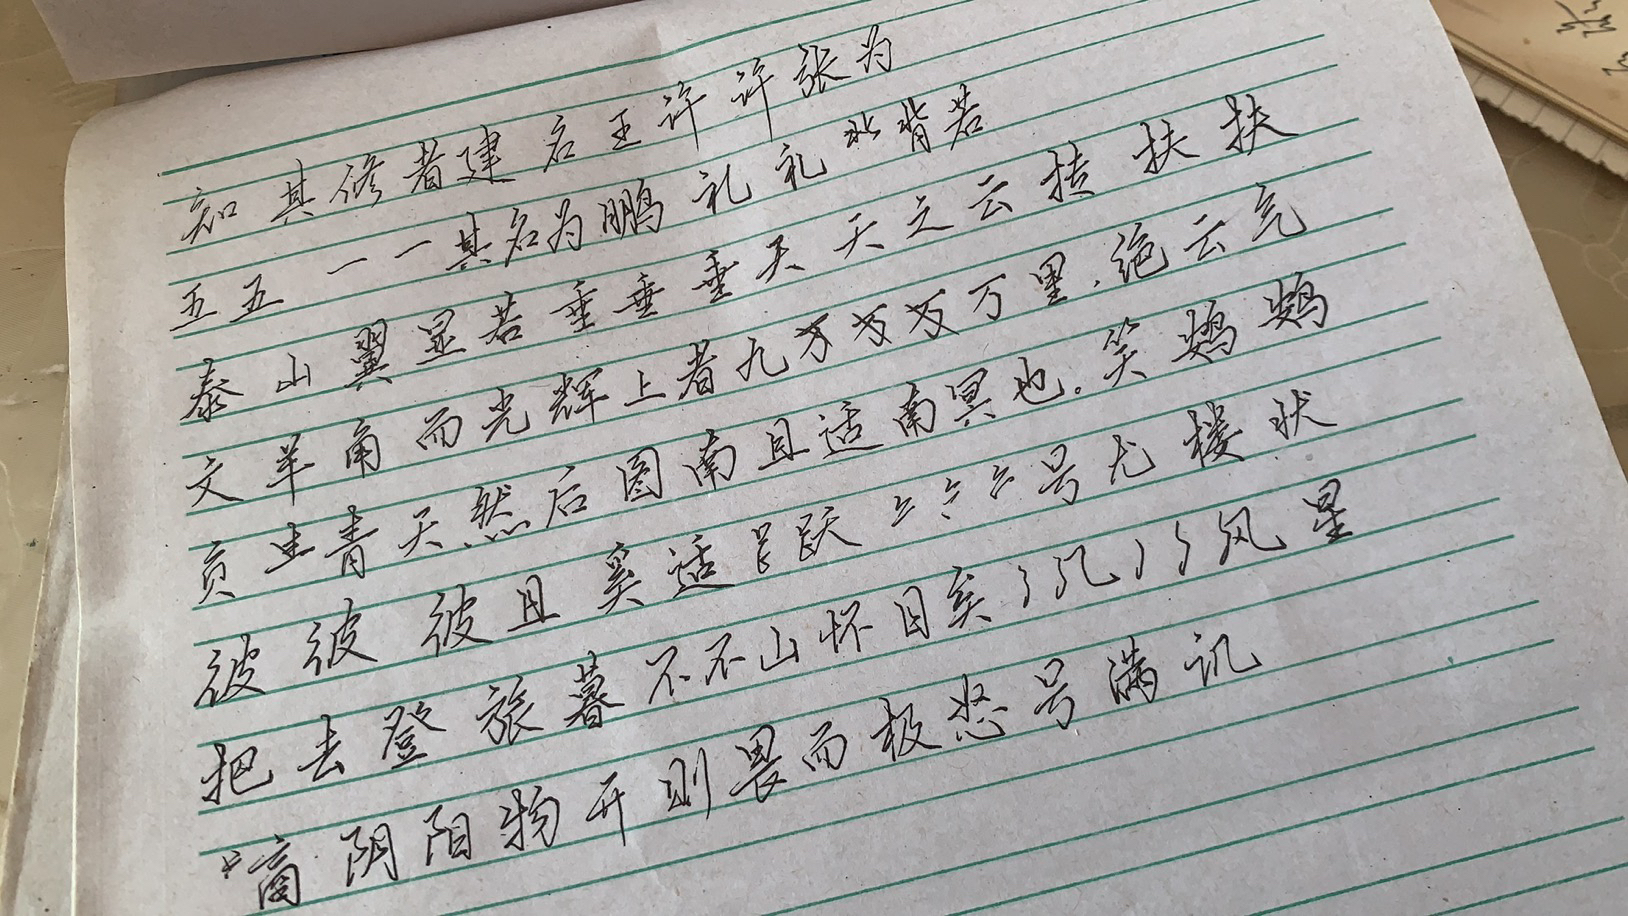 知其修者建名王许许张为
五五一一其名为鹏礼礼背若
泰山翼显若垂垂垂天天之云扶扶扶
文羊角而光辉上者九万万万万里.绝云气
负生青天.然后图南且适南冥也。笑鹅鹅
彼彼彼且奚适跃号尤楼状
把去登旅暮不不山怀目奚风星
商阴阳物开则畏而极怒号满讥